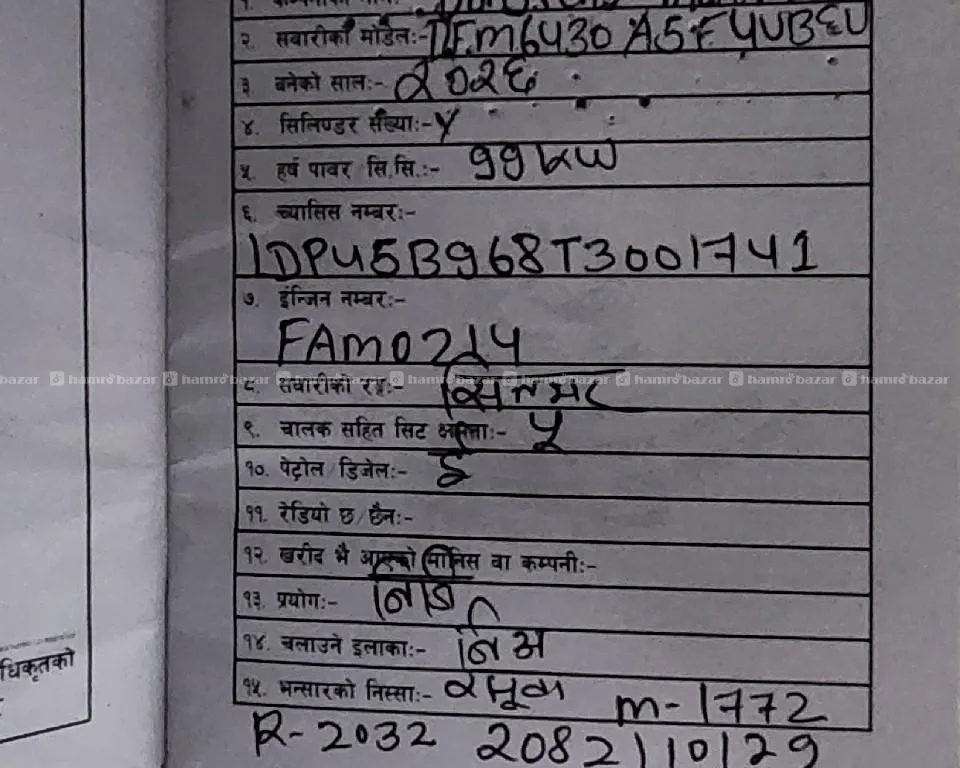 २. सवारीको मोडेल:- DFM6430A5F4UBEU
३. बनेको साल:- २०२६
४. सिलिण्डर संख्या:- ४
५. हर्ष पावर सि.सि.:- ९९ KW
६. च्यासिस नम्बर:-
LDPU5B968T3001741
७. इन्जिन नम्बर:-
FAM0214
hamrobazar hamrobazar hamrobazar hamrobazar hamrobazar hamrobazar hamrobazar hamrobazar
८. सवारीको रङ्ग:- सिल्भर
९. चालक सहित सिट क्षमता:- ५
१०. पेट्रोल डिजेल:- ई
११. रेडियो छ/छैन:-
१२. खरीद भै आएको मानिस वा कम्पनी:-
१३. प्रयोग:- निजि
१४. चलाउने इलाका:- नि अ
धिकृतको
१५. भन्सारको निस्सा:- रसुवा M-1772
R-2032 2082/10/29